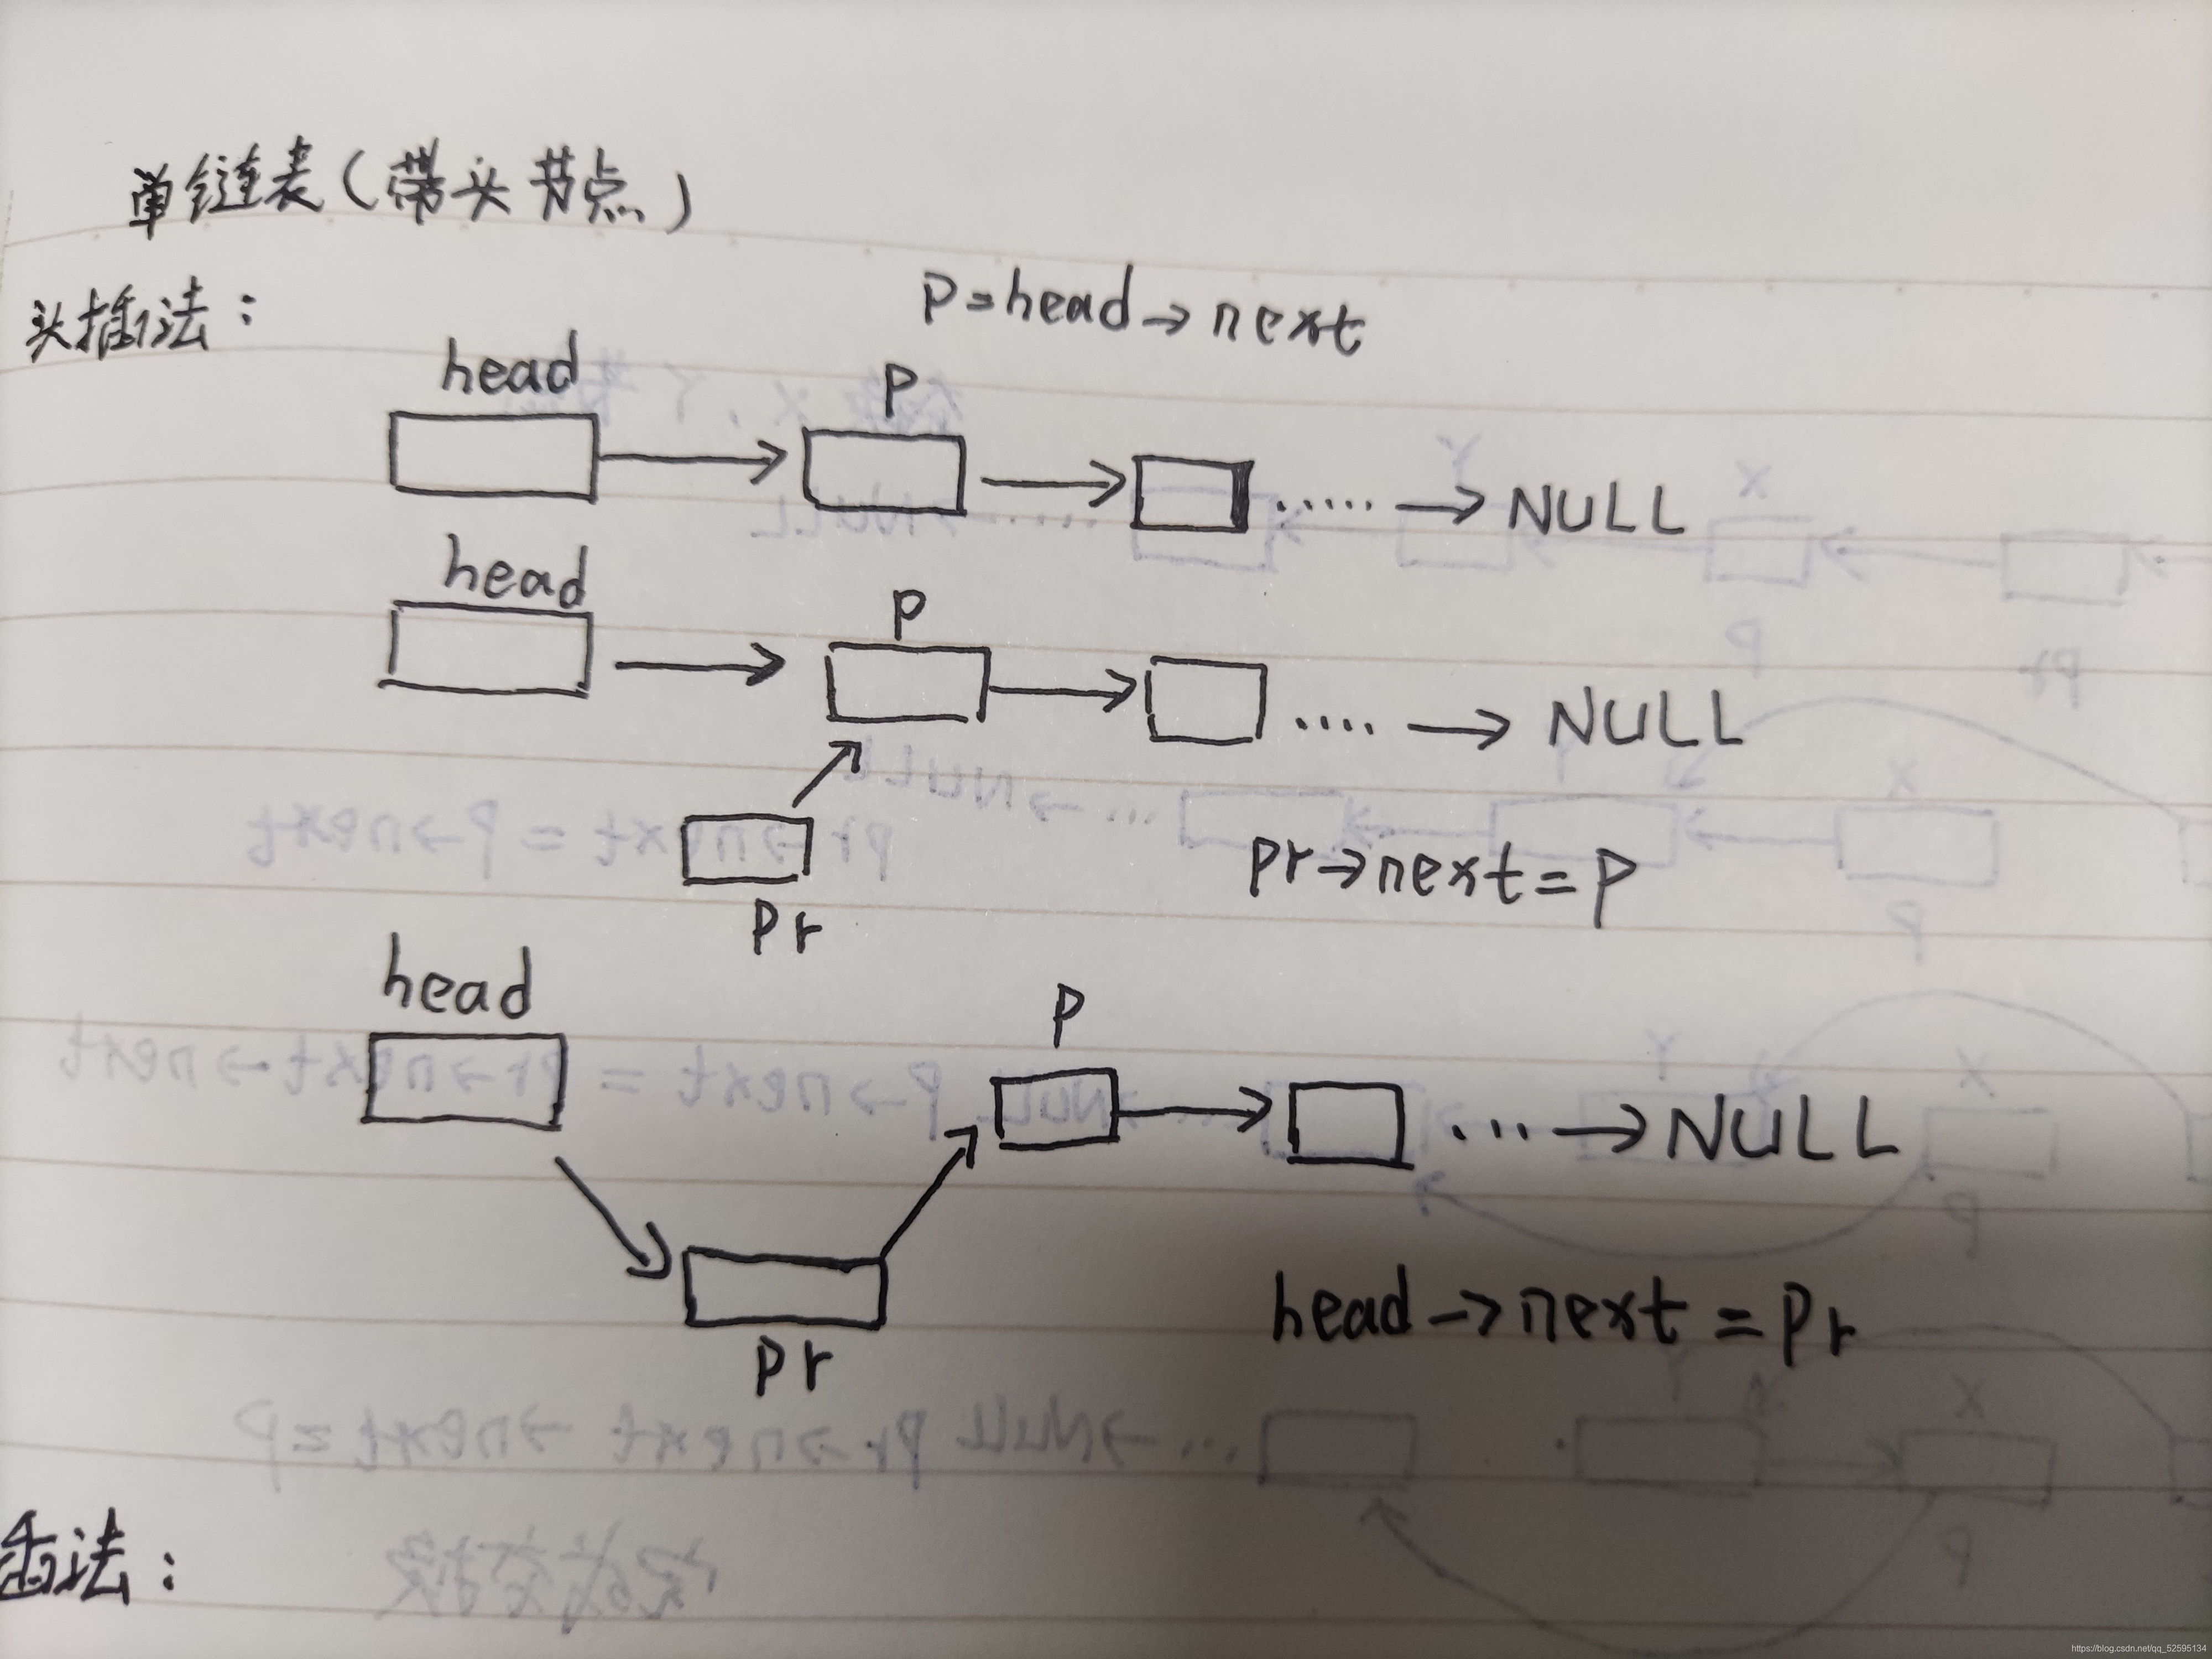 单链表(带头节点)
头插法:
p=head→next
head
p
→ → ...... → NULL
head
p
→ → .... → NULL
pr
pr→next=p
head
p
→ ... → NULL
pr
head→next=pr
插法:
https://blog.csdn.net/qq_52595134